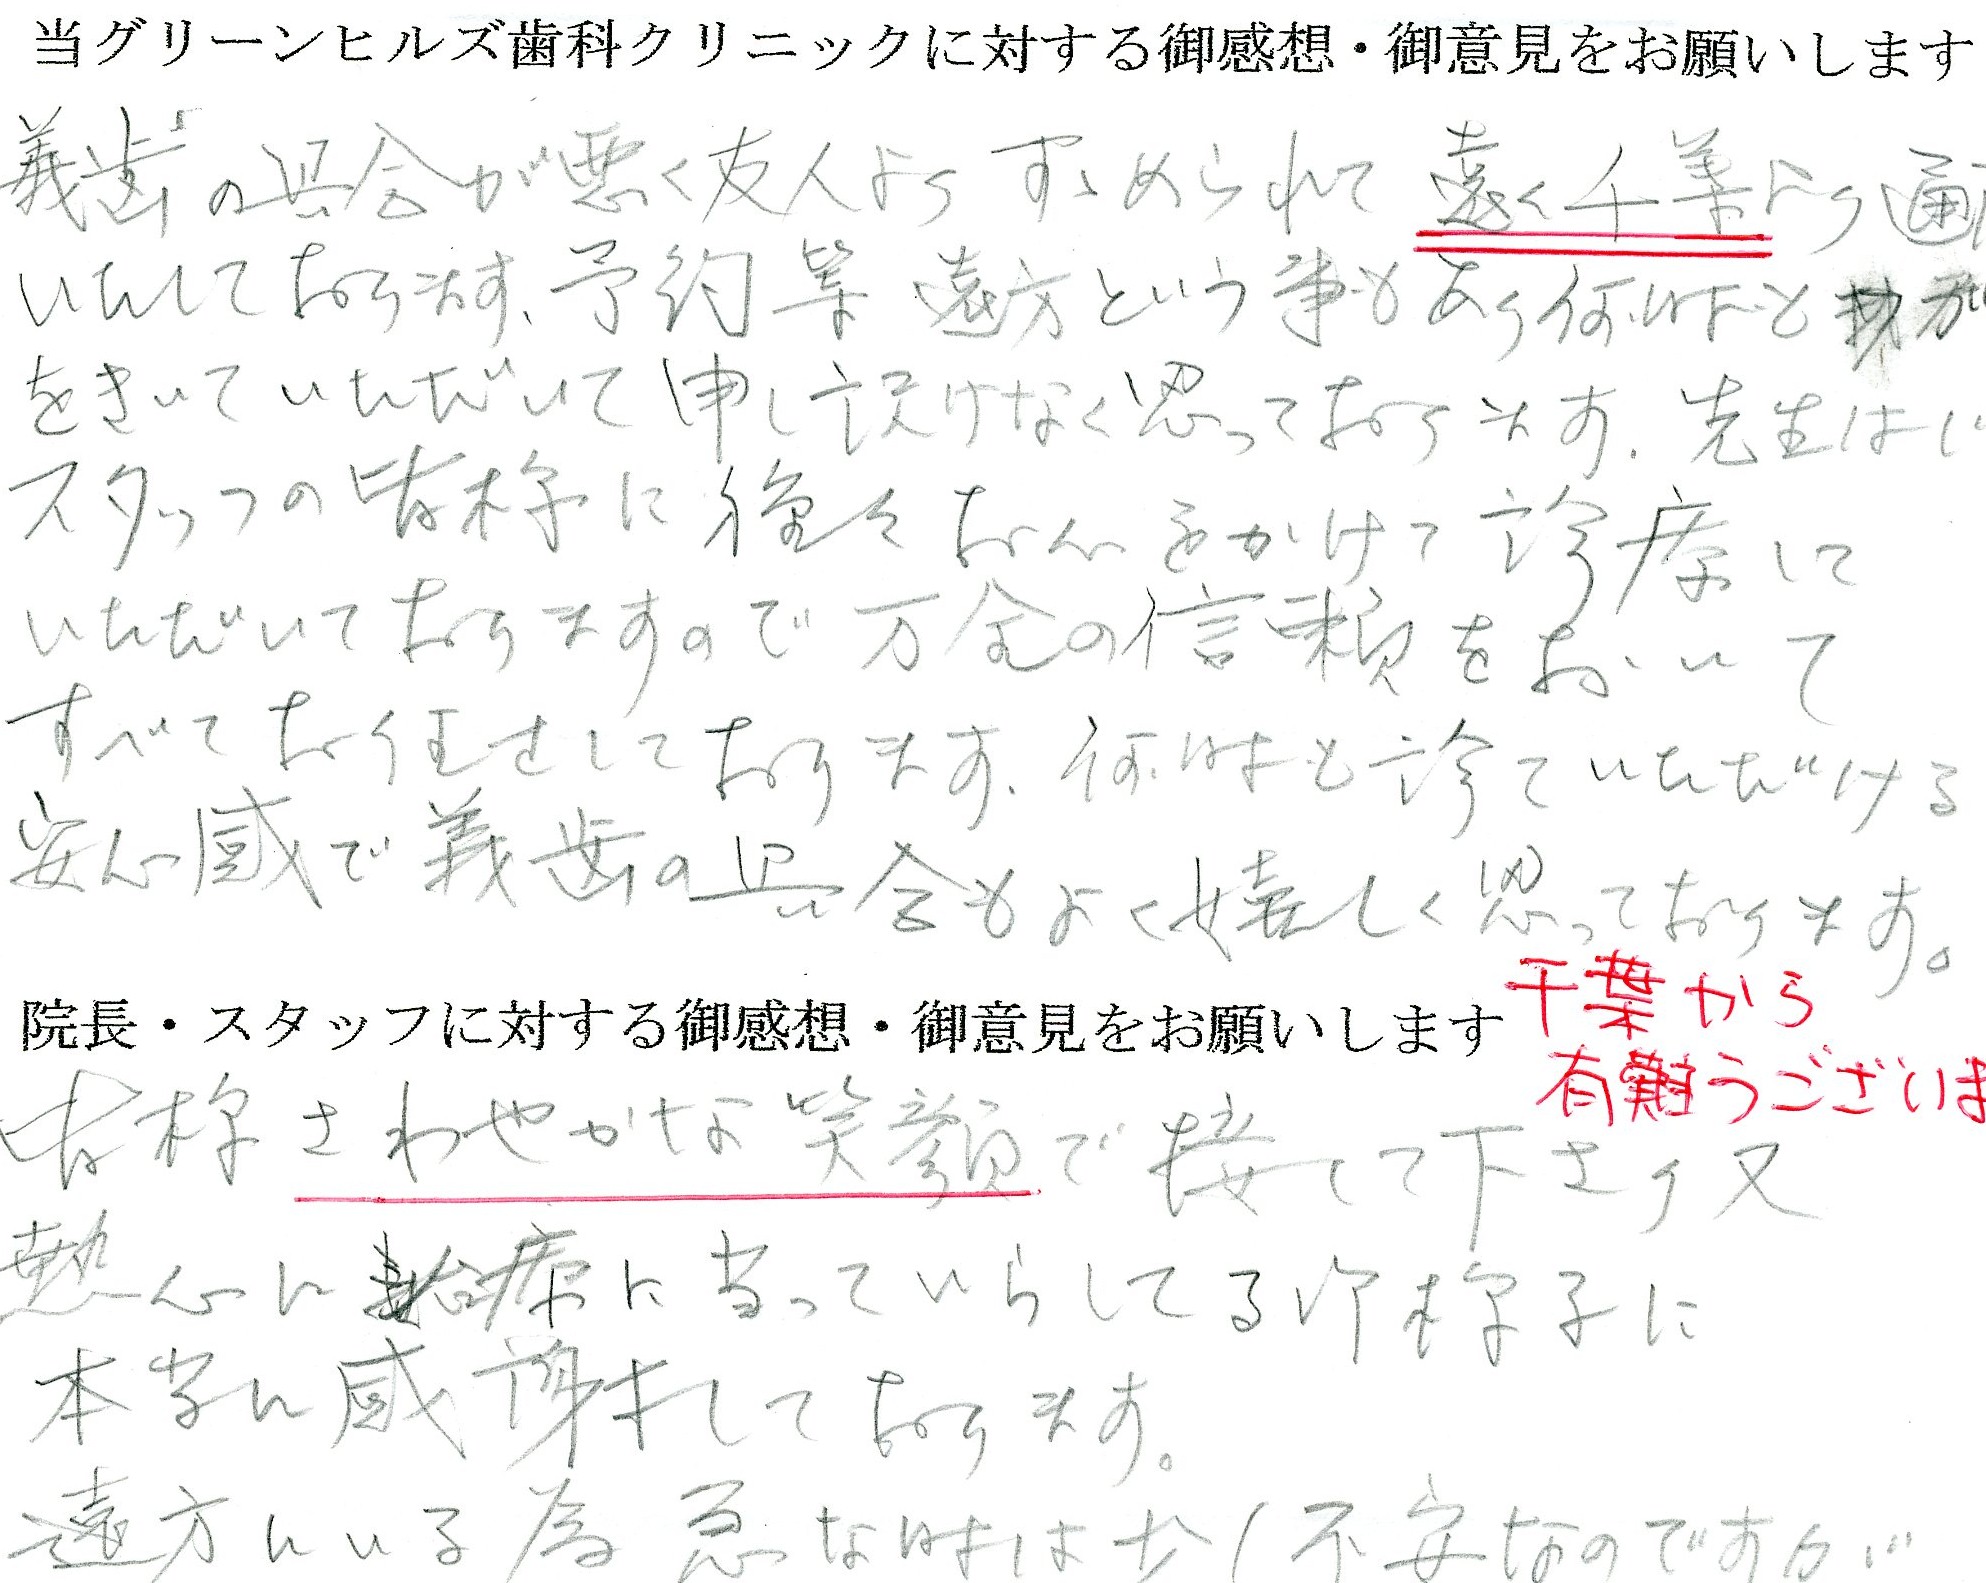 当グリーンヒルズ歯科クリニックに対する御感想・御意見をお願いします
義歯の具合が悪く友人より すゝめられて 遠く千葉より通
いたしております、予約等 遠方という事もあり何時も
をきいていただいて申し訳けなく思っております. 先生はじ
スタッフの皆様に種々お心をかけて診療して
いただいておりますので万全の信頼をおいて
すべてお任せしております. 何時も診ていただける
安心感で義歯の具合もよく嬉しく思っております。
千葉から
院長・スタッフに対する御感想・御意見をお願いします
有難うございま
皆様さわやかな笑顔で接して下さり又
熱心に治療に当っていらしてる御様子に
本当に感謝しております。
遠方にいる為 急な時は少し不安なのですが